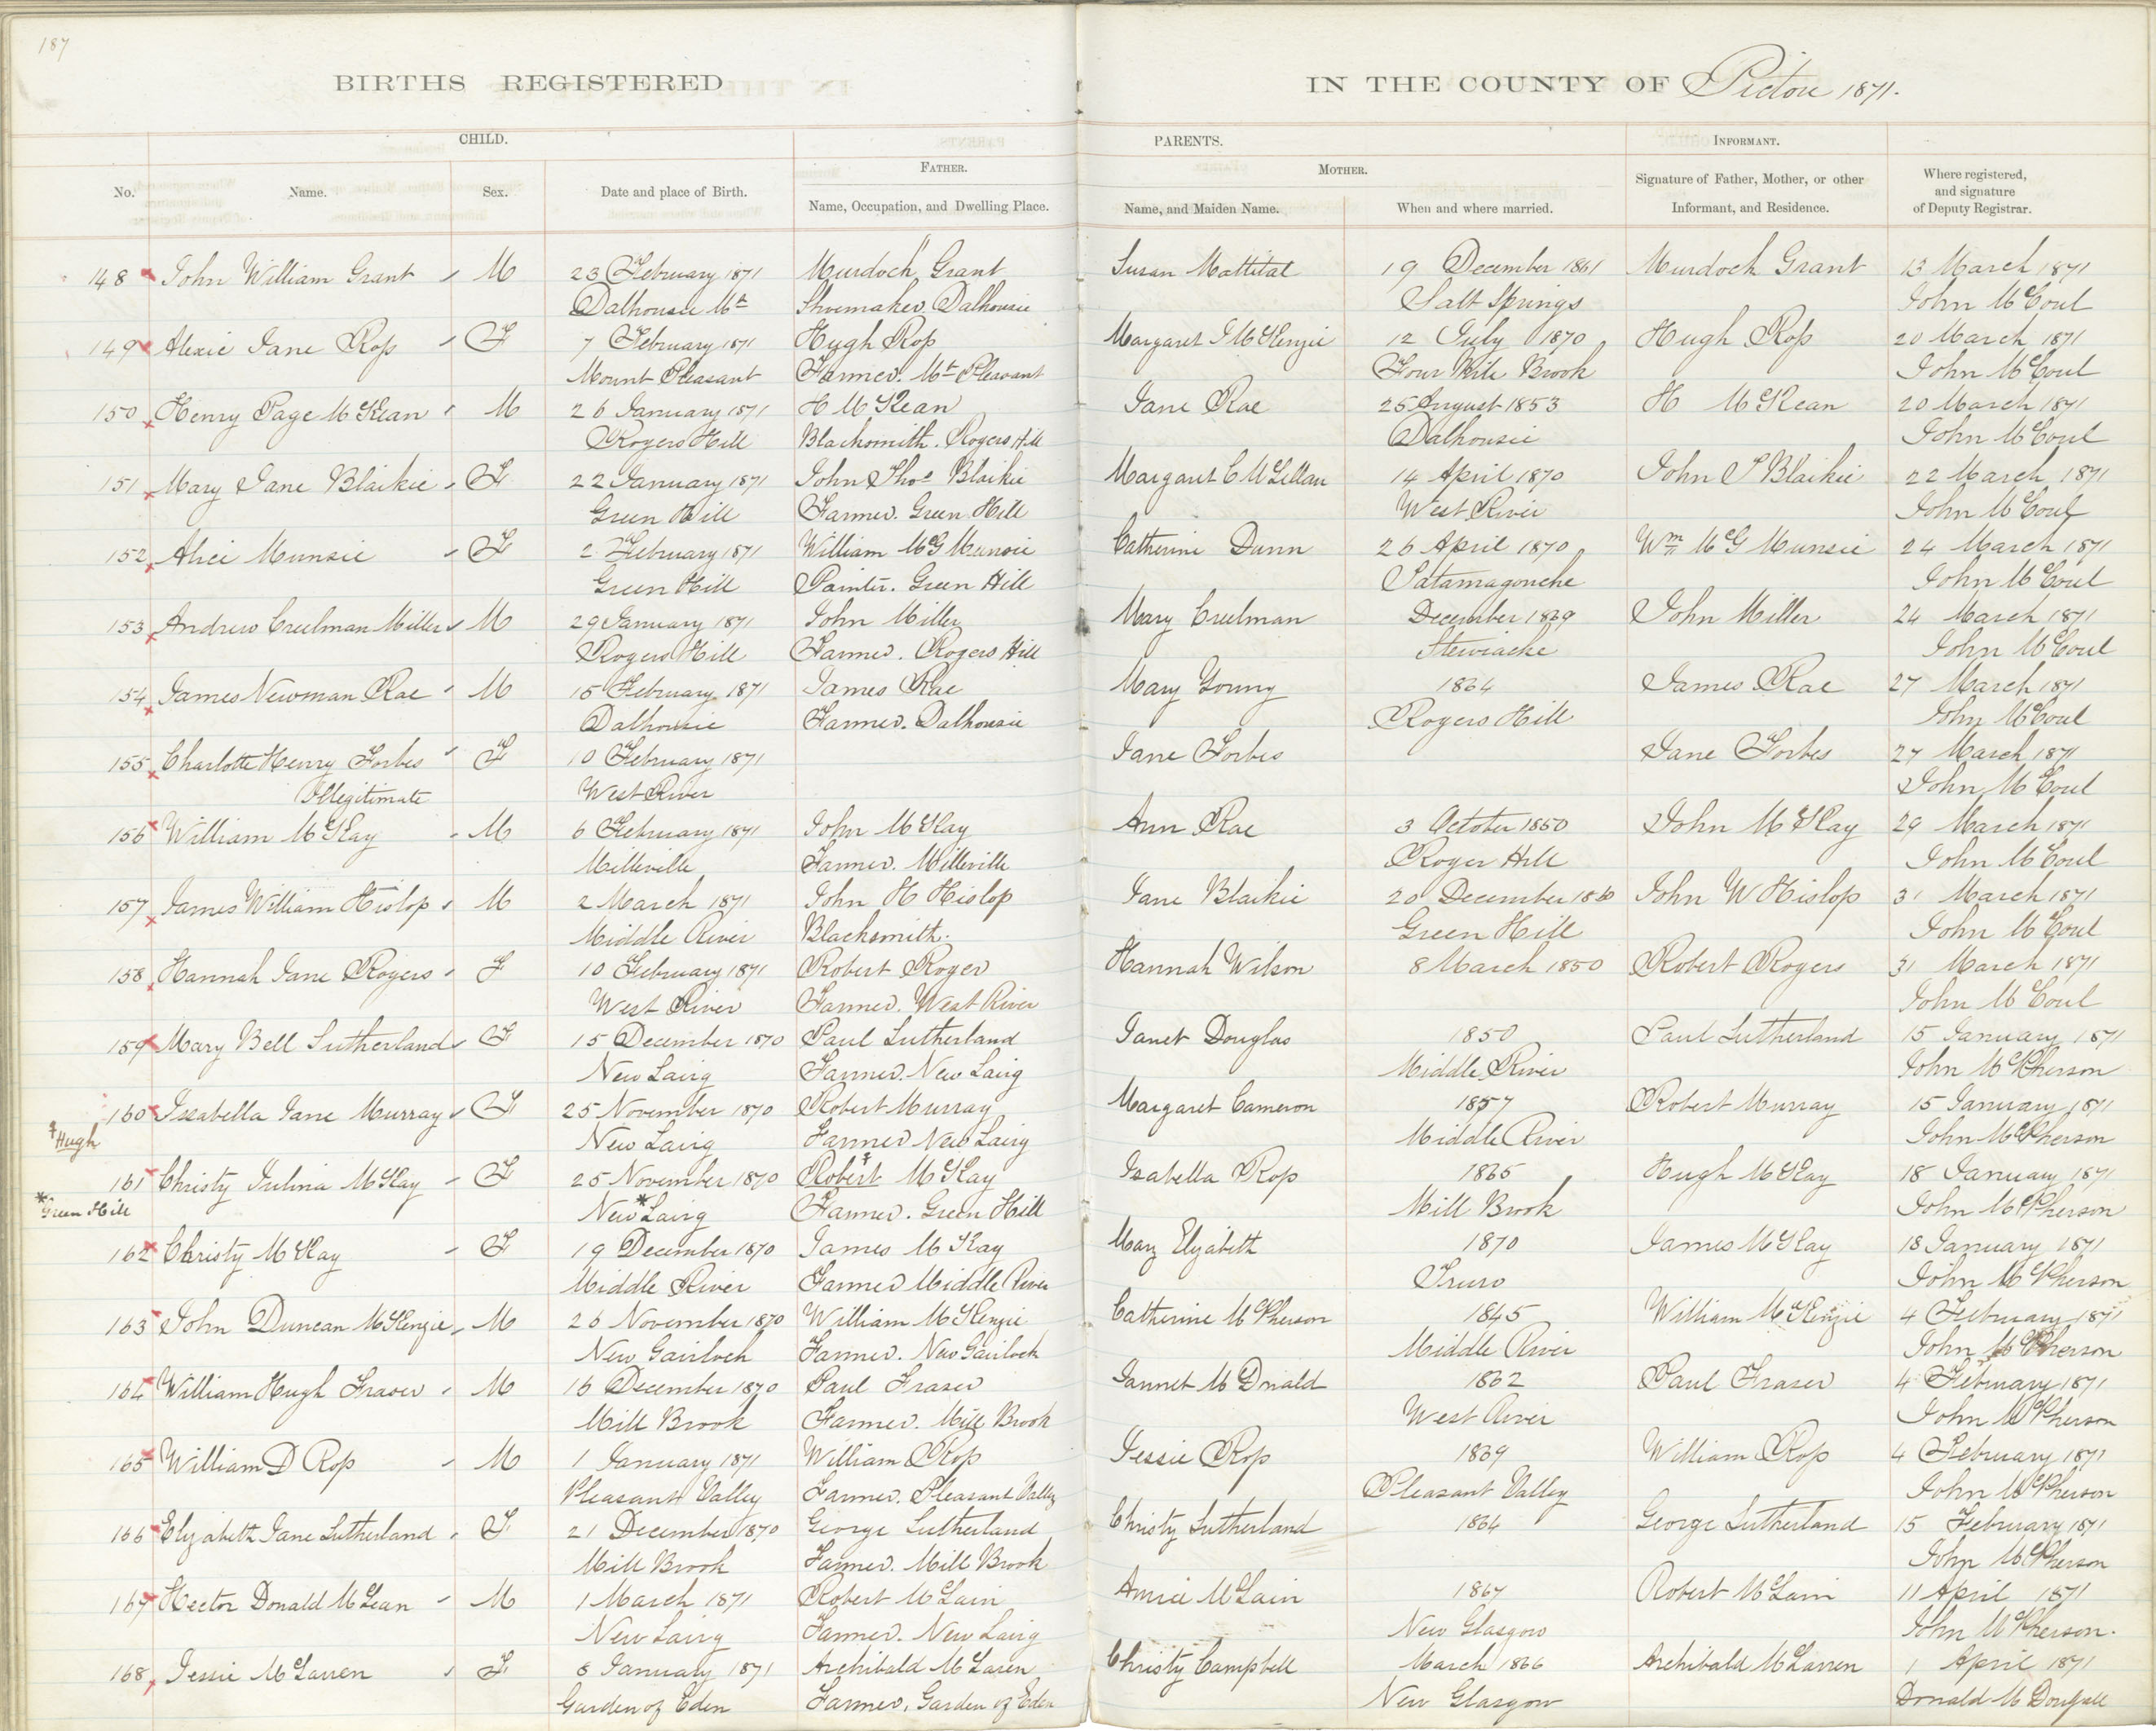 187
BIRTHS REGISTERED IN THE COUNTY OF Pictou 1871.
CHILD. PARENTS. INFORMANT.
FATHER. MOTHER.
No. Name. Sex. Date and place of Birth. Name, Occupation, and Dwelling Place. Name, and Maiden Name. When and where married. Signature of Father, Mother, or other Informant, and Residence. Where registered, and signature of Deputy Registrar.
148 John William Grant M 23 February 1871 Murdoch Grant Susan Mattital 19 December 1861 Murdoch Grant 13 March 1871
Dalhousie Mt Shoemaker Dalhousie Salt Springs John McCoul
149 Alexie Jane Ross F 7 February 1871 Hugh Ross Margaret J McKenzie 12 July 1870 Hugh Ross 20 March 1871
Mount Pleasant Farmer. Mt Pleasant Four Mile Brook John McCoul
150 Henry Page McKean M 26 January 1871 H McKean Jane Rae 25 August 1853 H McKean 20 March 1871
Rogers Hill Blacksmith. Rogers Hill Dalhousie John McCoul
151 Mary Jane Blaikie F 22 January 1871 John Thos Blaikie Margaret C McLellan 14 April 1870 John T Blaikie 22 March 1871
Green Hill Farmer. Green Hill West River John McCoul
152 Alice Munsie F 2 February 1871 William McG Munsie Catherine Dunn 26 April 1870 Wm McG Munsie 24 March 1871
Green Hill Painter. Green Hill Tatamagouche John McCoul
153 Andrew Creelman Miller M 29 January 1871 John Miller Mary Creelman December 1869 John Miller 24 March 1871
Rogers Hill Farmer. Rogers Hill Stewiacke John McCoul
154 James Newman Rae M 15 February 1871 James Rae Mary Young 1864 James Rae 27 March 1871
Dalhousie Farmer. Dalhousie Rogers Hill John McCoul
155 Charlotte Henry Forbes F 10 February 1871 Jane Forbes Jane Forbes 27 March 1871
Illegitimate West River John McCoul
156 William McKay M 6 February 1871 John McKay Ann Rae 3 October 1850 John McKay 29 March 1871
Milleville Farmer. Milleville Roger Hill John McCoul
157 James William Hislop M 2 March 1871 John H Hislop Jane Blaikie 20 December 1860 John W Hislop 31 March 1871
Middle River Blacksmith. Green Hill John McCoul
158 Hannah Jane Rogers F 10 February 1871 Robert Roger Hannah Wilson 8 March 1850 Robert Rogers 31 March 1871
West River Farmer. West River John McCoul
159 Mary Bell Sutherland F 15 December 1870 Paul Sutherland Janet Douglas 1850 Paul Sutherland 15 January 1871
New Lairg Farmer. New Lairg Middle River John McPherson
160 Issabella Jane Murray F 25 November 1870 Robert Murray Margaret Cameron 1857 Robert Murray 15 January 1871
‡ Hugh New Lairg Farmer New Lairg Middle River John McPherson
161 Christy Julina McKay F 25 November 1870 Robert ‡ McKay Isabella Ross 1865 Hugh McKay 18 January 1871
* Green Hill New * Lairg Farmer. Green Hill Mill Brook John McPherson
162 Christy McKay F 19 December 1870 James McKay Mary Elizabeth 1870 James McKay 18 January 1871
Middle River Farmer Middle River Truro John McPherson
163 John Duncan McKenzie M 26 November 1870 William McKenzie Catherine McPherson 1845 William McKenzie 4 February 1871
New Gairloch Farmer. New Gairloch Middle River John McPherson
164 William Hugh Fraser M 16 December 1870 Paul Fraser Jannet McDnald 1862 Paul Fraser 4 February 1871
Mill Brook Farmer. Mill Brook West River John McPherson
165 William D Ross M 1 January 1871 William Ross Jessie Ross 1869 William Ross 4 February 1871
Pleasant Valley Farmer. Pleasant Valley Pleasant Valley John McPherson
166 Elizabeth Jane Sutherland F 21 December 1870 George Sutherland Christy Sutherland 1864 George Sutherland 15 February 1871
Mill Brook Farmer. Mill Brook John McPherson
167 Hector Donald McLean M 1 March 1871 Robert McLain Annie McLain 1867 Robert McLain 11 April 1871
New Lairg Farmer. New Lairg New Glasgow John McPherson.
168 Jessie McLarren F 8 January 1871 Archibald McLaren Christy Campbell March 1866 Archibald McLarren 1 April 1871
Garden of Eden Farmer. Garden of Eden New Glasgow Donald McDougall